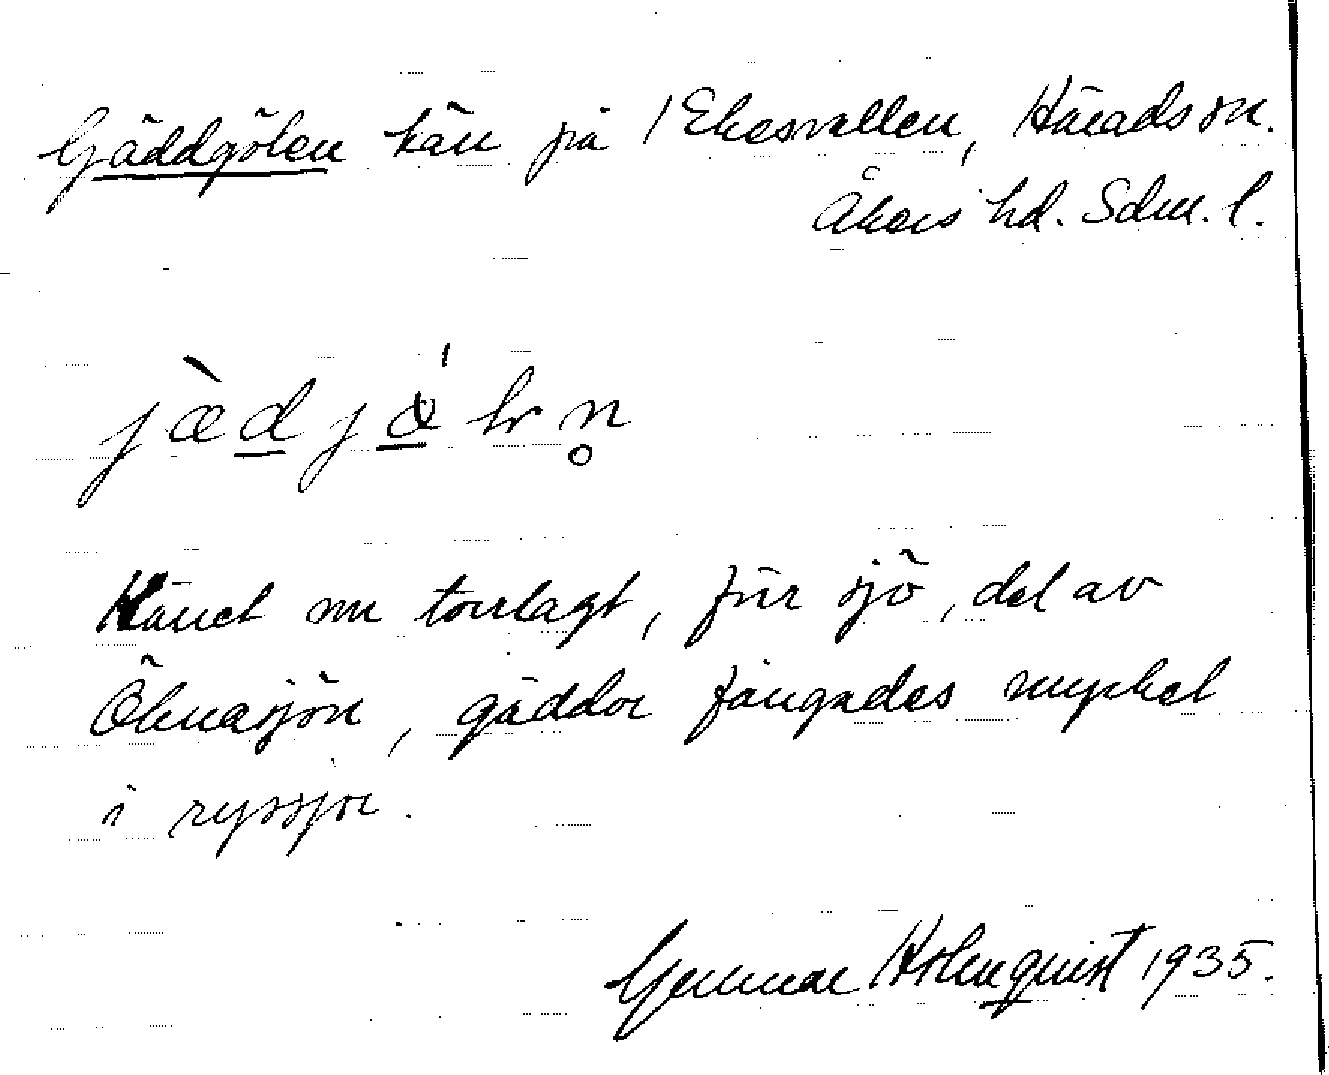 Gäddgölen kärr på 1 Ekesvallen, Härads sn.
Åkers hd. Sdm. l.
jæ̀djǿln̥
Kärret nu torrlagt, förr sjö, del av
Öknasjön, gäddor fångades mycket
i ryssjor.
Gunnar Holmquist 1935.